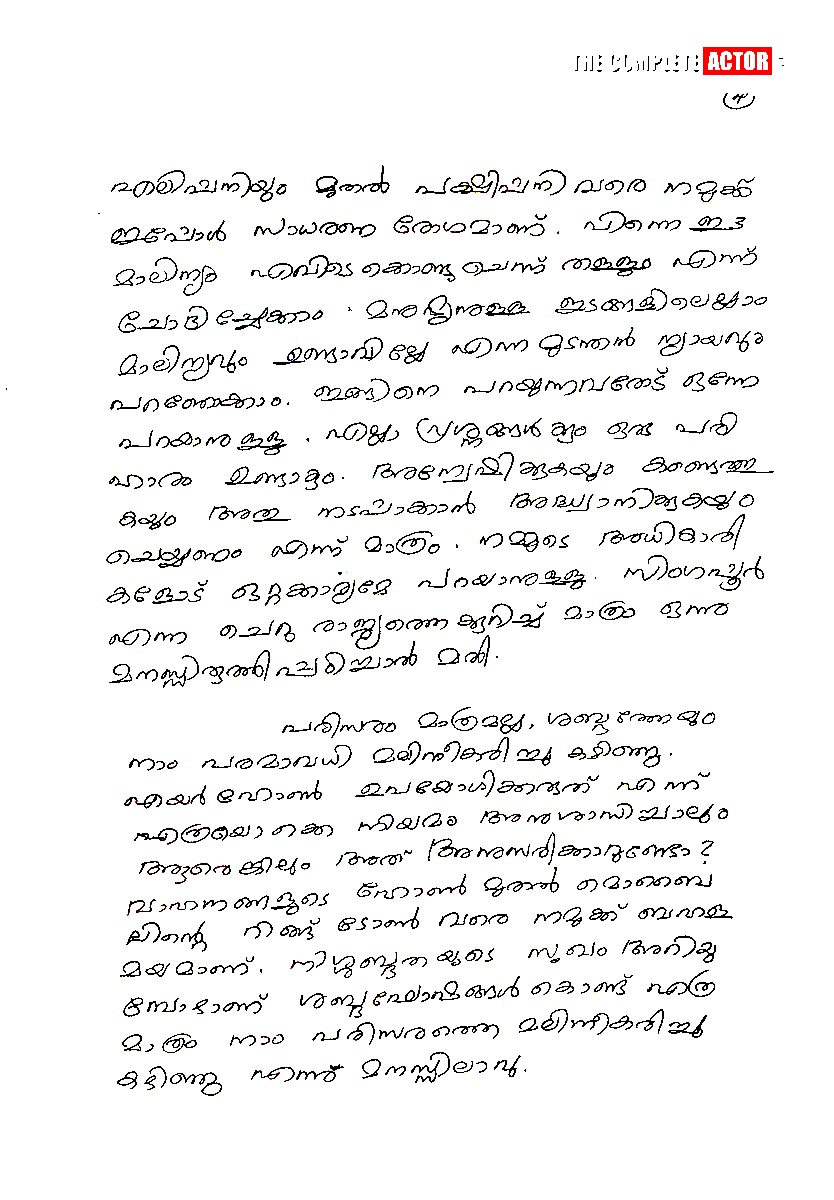 THE COMPLETE ACTOR
൪
എലിപ്പനിയും മുതൽ പക്ഷിപ്പനി വരെ നമുക്ക്
ഇപ്പോൾ സാധരണ രോഗമാണ്. പിന്നെ ഈ
മാലിന്യം എവിടെ കൊണ്ടു ചെന്ന് തള്ളും എന്ന്
ചോദിച്ചേക്കാം. മനുഷ്യനുള്ള ഇടങ്ങളിലെല്ലാം
മാലിന്യവും ഉണ്ടാവില്ലേ എന്ന മുടന്തൻ ന്യായവും
പറഞ്ഞേക്കാം. ഇങ്ങിനെ പറയുന്നവരോട് ഒന്നേ
പറയാനുള്ളു. എല്ലാ പ്രശ്നങ്ങൾക്കും ഒരു പരി
ഹാരം ഉണ്ടാകും. അന്വേഷിക്കുകയും കണ്ടെത്തു
കയും അത് നടപ്പാക്കാൻ അദ്ധ്വാനിക്കുകയും
ചെയ്യണം എന്ന് മാത്രം. നമ്മുടെ അധികാരി
കളോട് ഒറ്റക്കാര്യമേ പറയാനുള്ളു. സിംഗപ്പൂർ
എന്ന ചെറു രാജ്യത്തെക്കുറിച്ച് മാത്രം ഒന്നു
മനസ്സിരുത്തി പഠിച്ചാൽ മതി.
പരിസരം മാത്രമല്ല, ശബ്ദത്തേയും
നാം പരമാവധി മലിനീകരിച്ചു കഴിഞ്ഞു.
എയർ ഹോൺ ഉപയോഗിക്കരുത് എന്ന്
എത്രയൊക്കെ നിയമം അനുശാസിച്ചാലും
ആരെങ്കിലും അത് അനുസരിക്കാറുണ്ടോ?
വാഹനങ്ങളുടെ ഹോൺ മുതൽ മൊബൈ
ലിന്റെ റിങ്ങ് ടോൺ വരെ നമുക്ക് ബഹള
മയമാണ്. നിശ്ശബ്ദതയുടെ സുഖം അറിയു
മ്പോഴാണ് ശബ്ദഘോഷങ്ങൾ കൊണ്ട് എത്ര
മാത്രം നാം പരിസരത്തെ മലിനീകരിച്ചു
കഴിഞ്ഞു എന്ന് മനസ്സിലാവൂ.